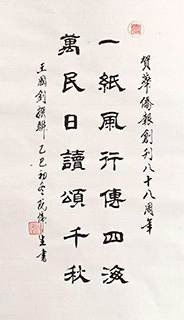 賀華僑報創刊八十八周年
一紙風行傳四海
萬民日讀頌千秋
王國釗撰聯 乙巳初冬 阮偉生書